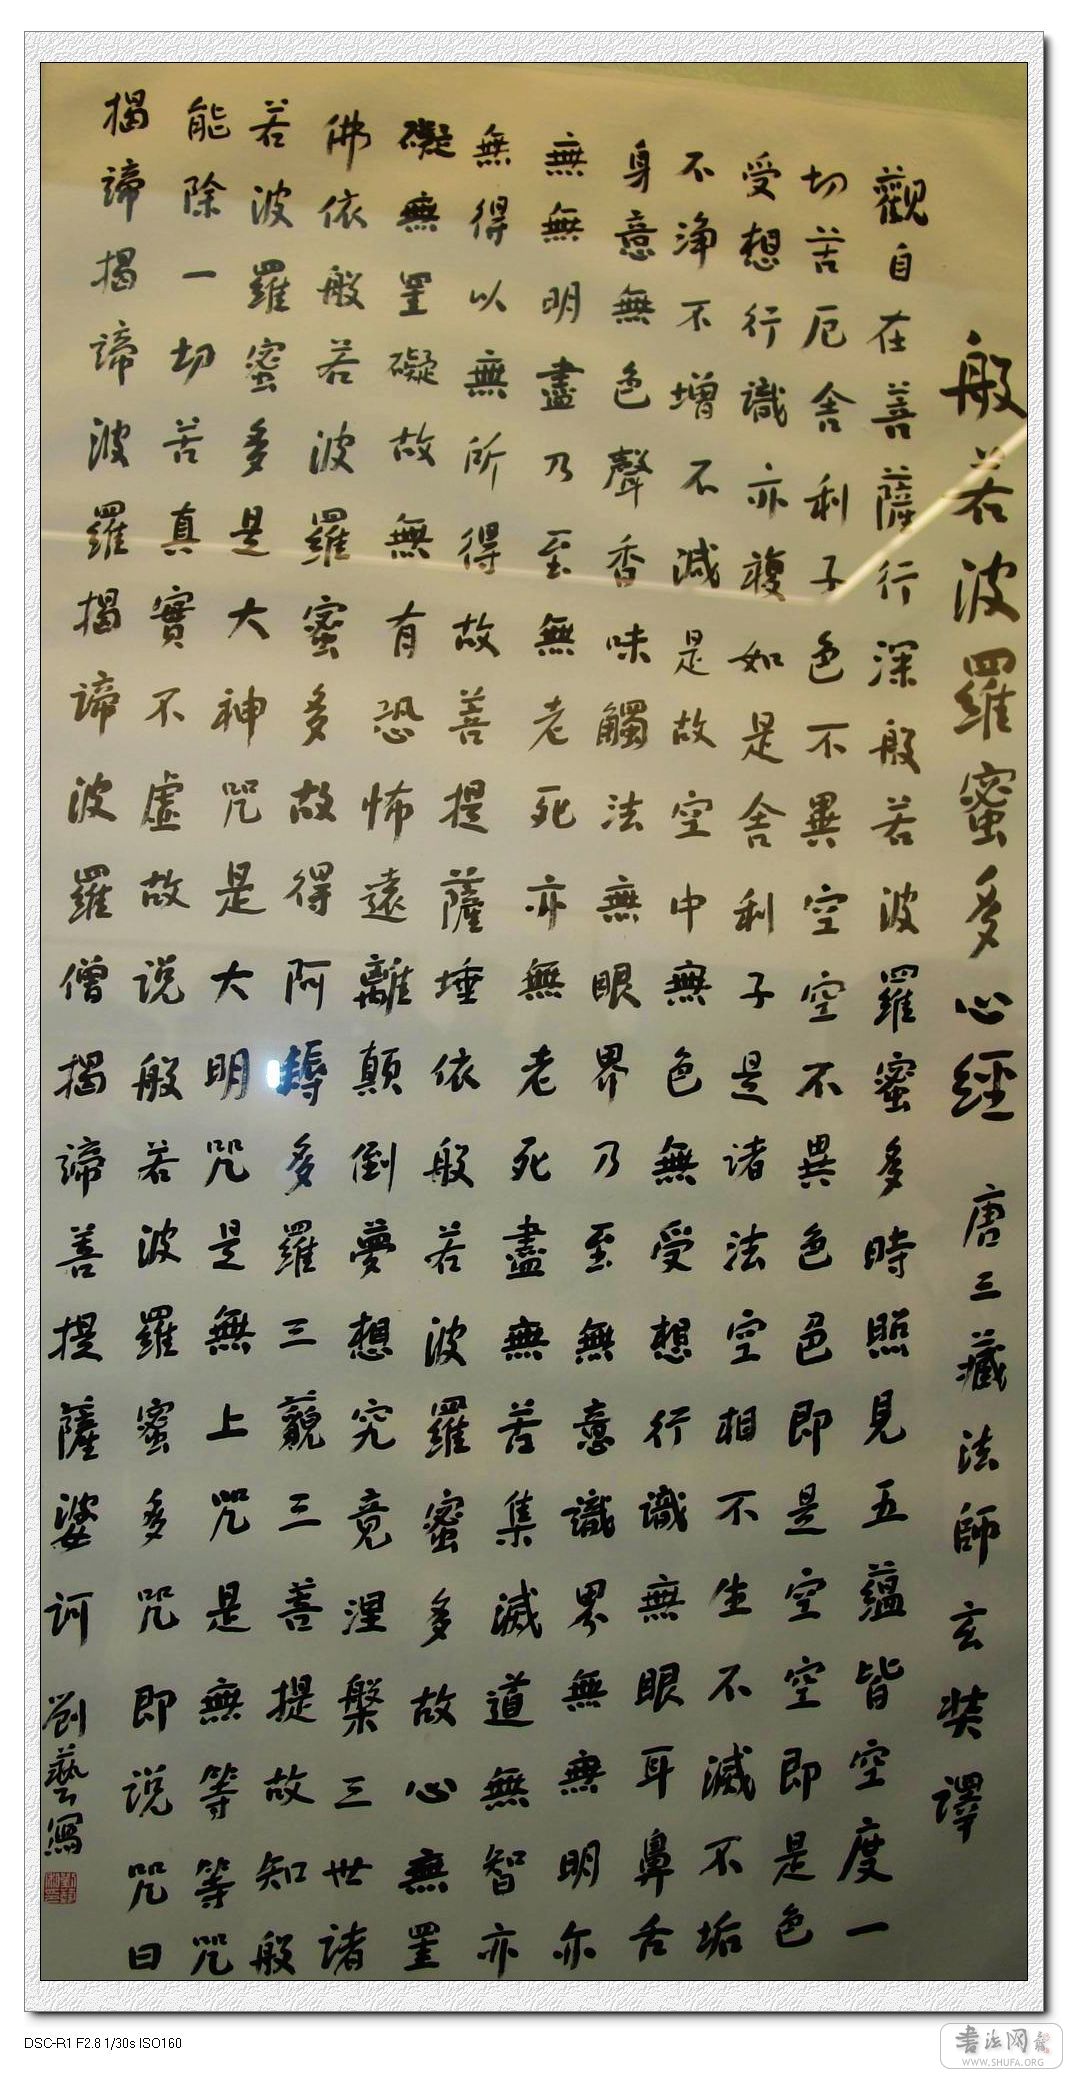 般若波羅蜜多心經 唐三藏法師玄奘譯
觀自在菩薩行深般若波羅蜜多時照見五蘊皆空度一
切苦厄舍利子色不異空空不異色色即是空空即是色
受想行識亦複如是舍利子是諸法空相不生不滅不垢
不淨不增不減是故空中無色無受想行識無眼耳鼻舌
身意無色聲香味觸法無眼界乃至無意識界無無明亦
無無明盡乃至無老死亦無老死盡無苦集滅道無智亦
無得以無所得故菩提薩埵依般若波羅蜜多故心無罣
礙無罣礙故無有恐怖遠離顛倒夢想究竟涅槃三世諸
佛依般若波羅蜜多故得阿耨多羅三藐三菩提故知般
若波羅蜜多是大神咒是大明咒是無上咒是無等等咒
能除一切苦真實不虛故说般若波羅蜜多咒即说咒曰
揭諦揭諦波羅揭諦波羅僧揭諦菩提薩婆訶 劉藝寫
DSC-R1 F2.8 1/30s ISO160
书法网
WWW.SHUFA.ORG